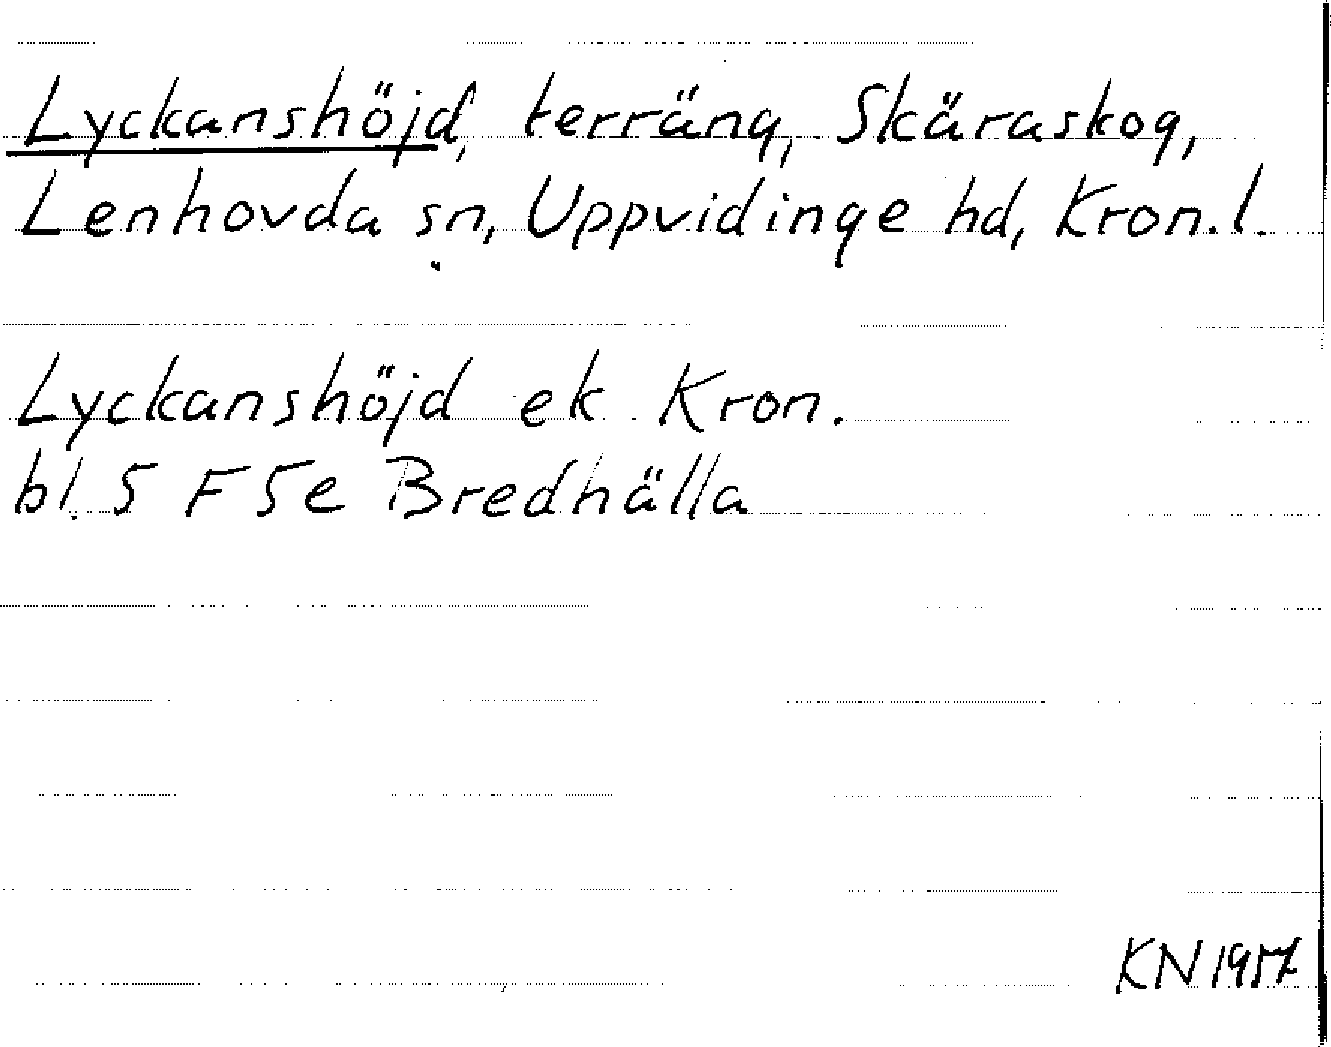 Lyckanshöjd, terräng, Skäraskog,
Lenhovda sn, Uppvidinge hd, Kron.l.
Lyckanshöjd ek. Kron.
bl. 5 F 5e Bredhälla
KN 1957